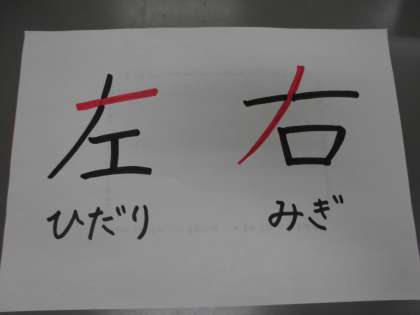 左 右
ひだり みぎ